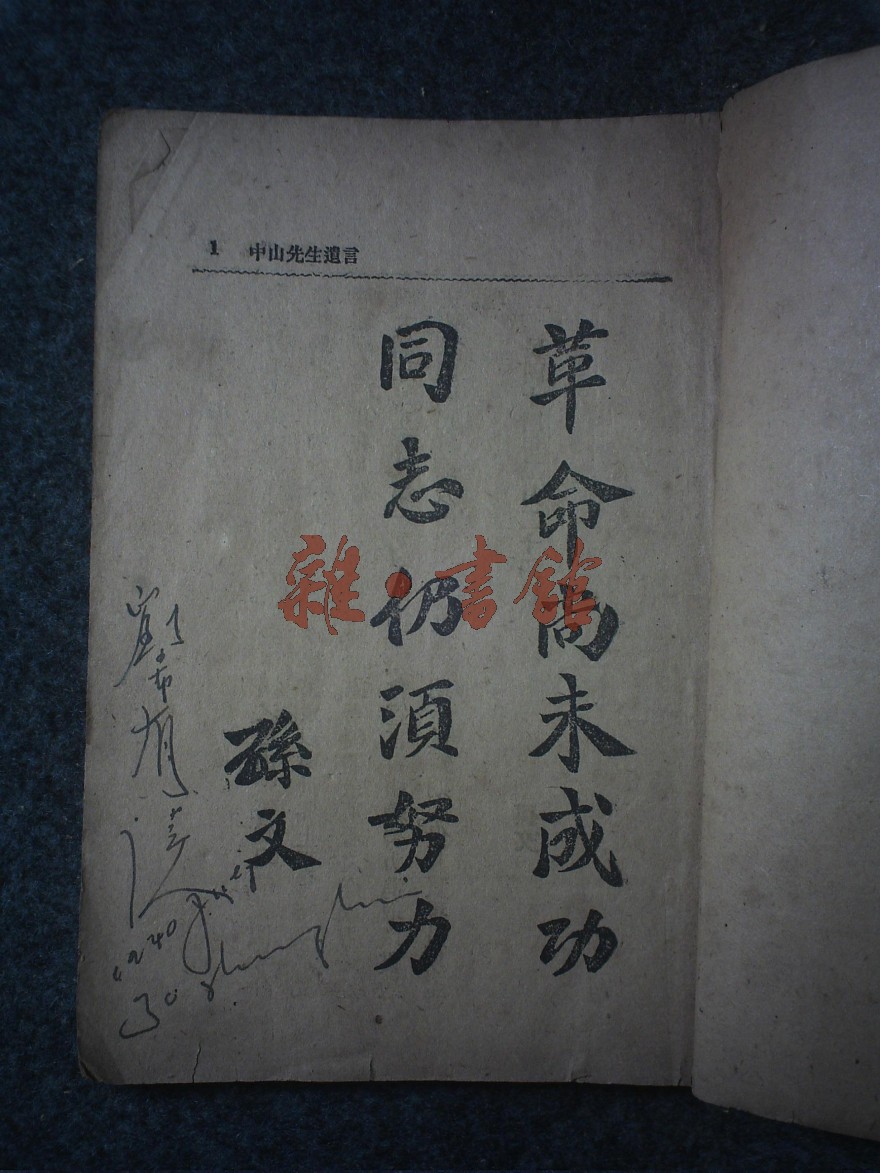 1 中山先生遺言
革命尚未成功
同志仍須努力
孫文
雜·書館